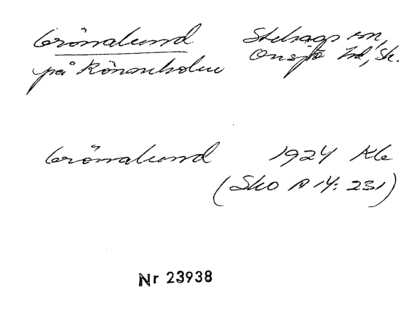 Grönalund Stehags sn,
på Rönneholm Onsjö hd, Sk.
Grönalund 1924 Kle
(Sko A 14: 231)
Nr 23938